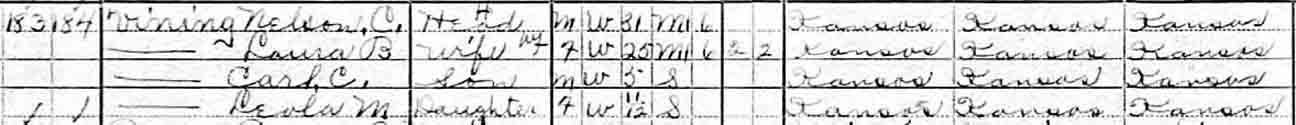 183 184 Vining Nelson, C. Head M W 31 M1 6 Kansas Kansas Kansas
—— Laura B Wife F W 25 M1 6 2 2 Kansas Kansas Kansas
—— Carl, C. Son M W 5 S Kansas Kansas Kansas
—— Leola M Daughter F W 11/12 S Kansas Kansas Kansas